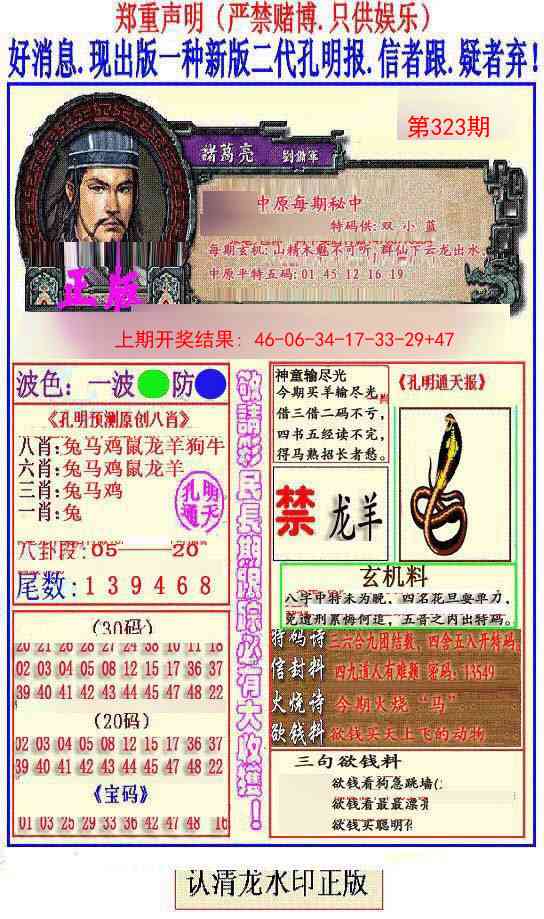 郑重声明（严禁赌博.只供娱乐）
好消息.现出版一种新版二代孔明报.信者跟.疑者弃!
第323期
諸葛亮 劉備軍
中原每期秘中
特码供:双 小 蓝
每期玄机:山精木魅不可听,群仙下云龙出水.
中原平特五码:01 45 12 16 19
正版
上期开奖结果: 46-06-34-17-33-29+47
波色: 一波 防
《孔明预测原创八肖》
八肖:兔马鸡鼠龙羊狗牛
六肖:兔马鸡鼠龙羊
三肖:兔马鸡
一肖:兔
孔明
通天
八卦段:05——20
尾数:139468
(30码)
20 21 26 28 23 27 24 38 10 11 18
02 03 04 05 08 12 15 17 36 37
39 40 41 42 43 44 45 47 48 22
(20码)
02 03 04 05 08 12 15 17 36 37
39 40 41 42 43 44 45 47 48 22
《宝码》
01 03 25 29 33 36 42 47 48 16
敬請彩民長期跟踪必有大收獲！
神童输尽光
今期买羊输尽光
借三借二码不亏,
四书五经读不完,
得马熟招长者愁。
《孔明通天报》
禁 龙羊
玄机料
八字中特未为晚, 四名花旦耍单刀,
竞遭刑累悔何追, 五音之内出特码。
特码诗 三六合九团结数，四舍五八开特码
信封料 四九道人有雕捆 密码：13549
火烧诗 今期火烧“马”
欲钱料 欲钱买天上飞的动物
三句欲钱料
欲钱看狗急跳墙(
欲钱看最最漂
欲钱买聪明
认清龙水印正版